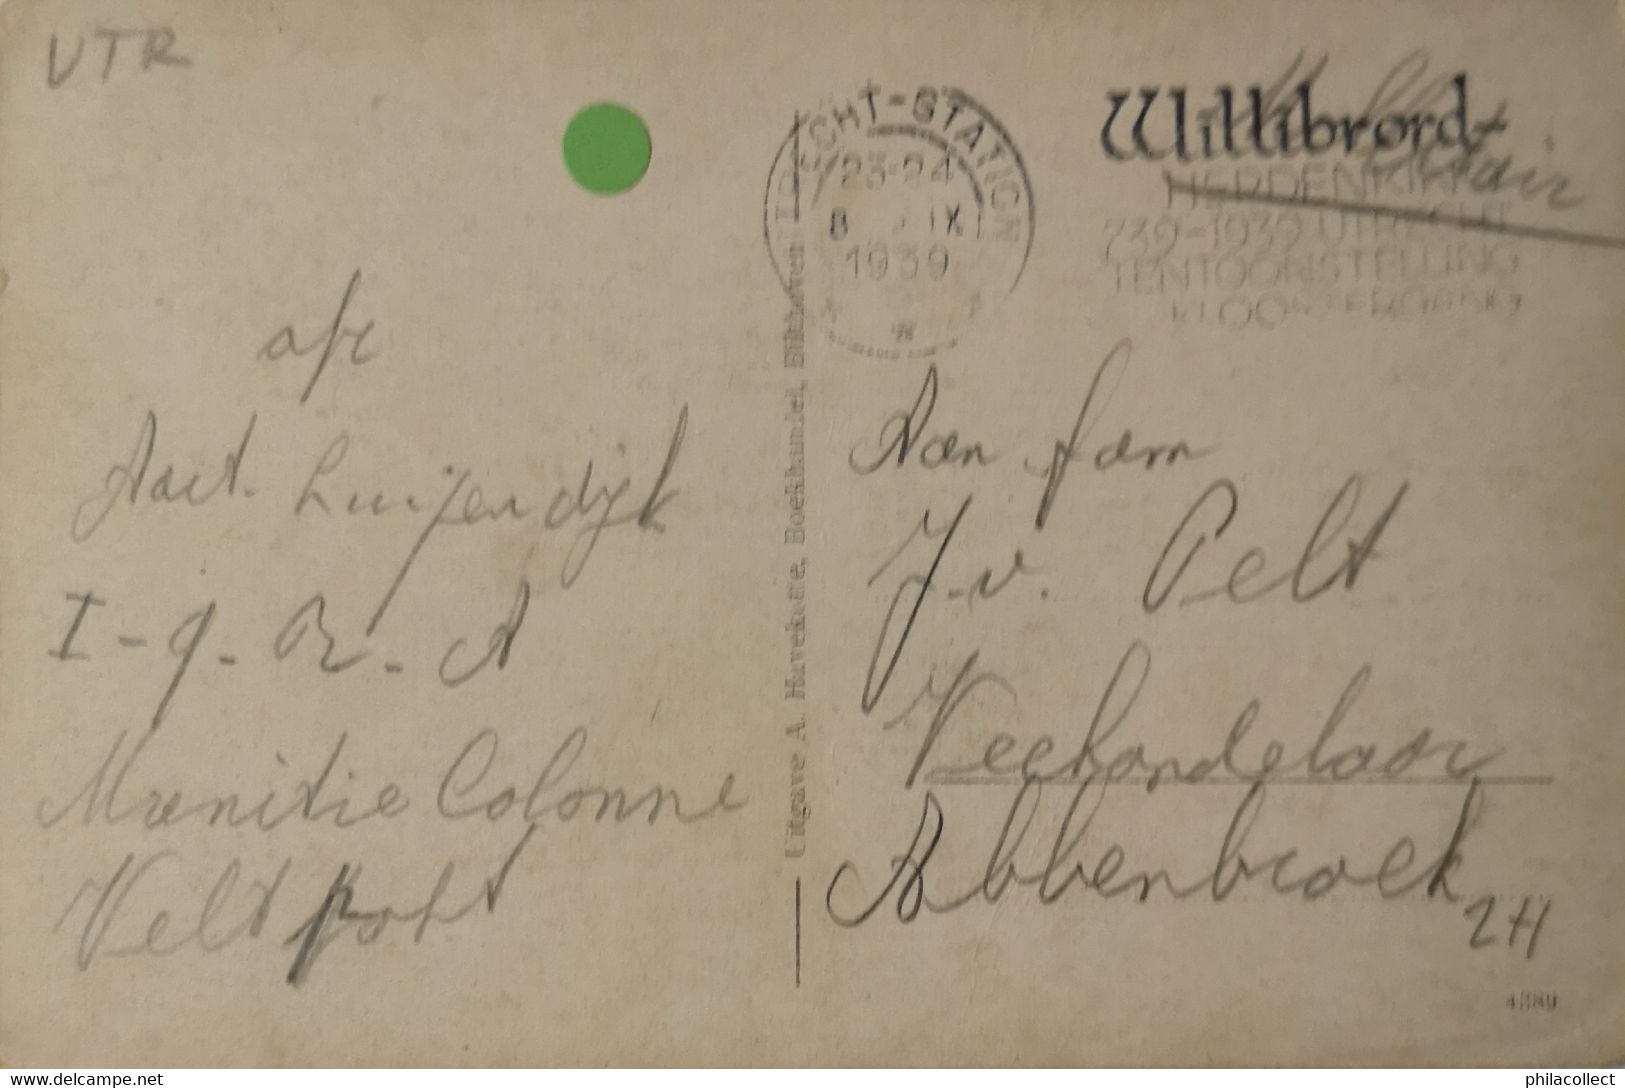 UTR
UTRECHT-STATION
23-24
8 IX
1939
Willibrord
HERDENKING
739-1939 UTRECHT
TENTOONSTELLING
KLOOSTERGANG
Militair
afz
Aart. Luijendijk
I-9-R-A
Munitie Colonne
Veltpost
Uitgave A. Havekotte, Boekhandel, Bilthoven
Aan fam
J.v. Pelt
Veehandelaar
Abbenbroek
ZH
delcampe.net
philacollect